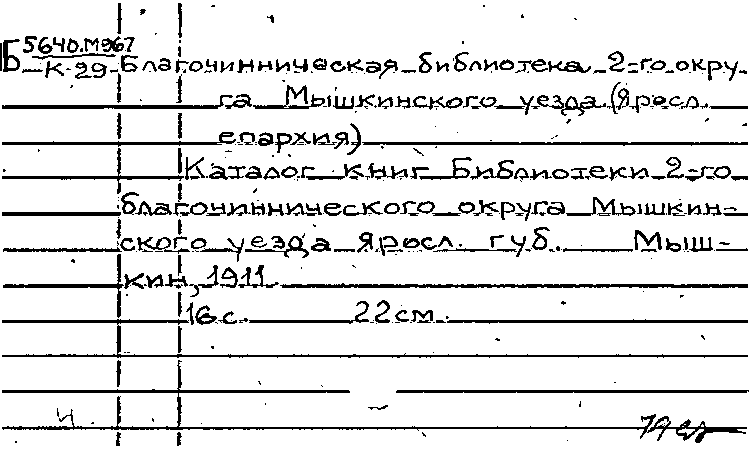 Б 5640.М967
К-29 Благочинническая библиотека 2-го окру-
га Мышкинского уезда (Яросл.
епархия)
Каталог книг Библиотеки 2-го
благочиннического округа Мышкин-
ского уезда Яросл. губ. Мыш-
кин, 1911.
16 с. 22 см.